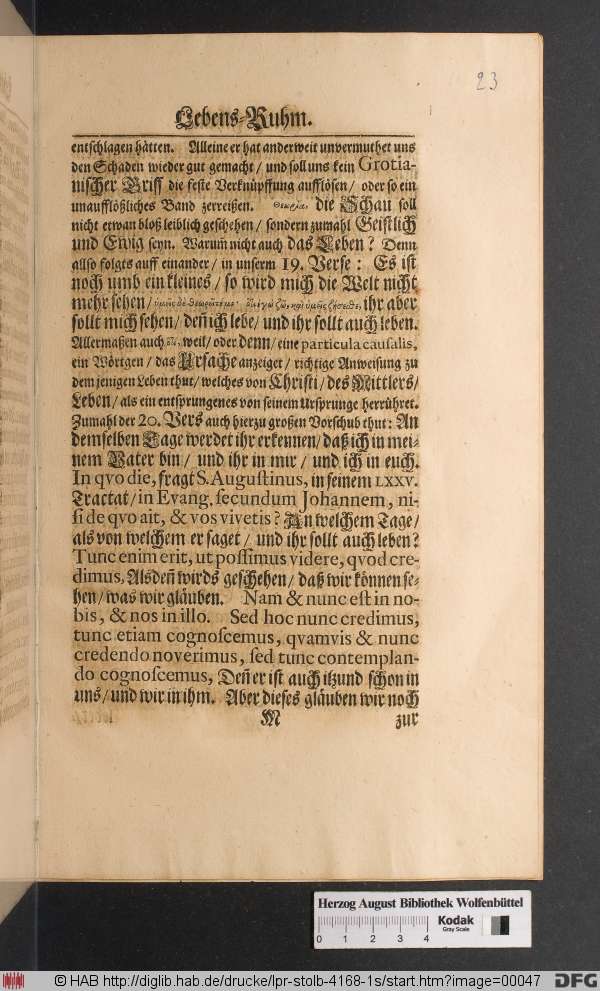 23
Lebens-Ruhm.
entschlagen hätten. Alleine er hat anderweit unvermuthet uns
den Schaden wieder gut gemacht / und soll uns kein Grotia-
nischer Griff die feste Verknüpffung aufflösen / oder so ein
unaufflößliches Band zerreißen. θεωρία, die Schau soll
nicht etwan bloß leiblich geschehen / sondern zumahl Geistlich
und Ewig seyn. Warum̃ nicht auch das Leben? Denn
allso folgts auff einander / in unserm 19. Verse: Es ist
noch umb ein kleines / so wird mich die Welt nicht
mehr sehen / ὑμεῖς δὲ θεωρεῖτέ με· ὅτι ἐγὼ ζῶ, καὶ ὑμεῖς ζήσεσθε, ihr aber
sollt mich sehen / den̄ ich lebe / und ihr sollt auch leben.
Allermaßen auch ὅτι, weil / oder denn / eine particula causalis,
ein Wörtgen / das Ursache anzeiget / richtige Anweisung zu
dem jenigen Leben thut / welches von Christi / des Mittlers /
Leben / als ein entsprungenes von seinem Ursprunge herrühret.
Zumahl der 20. Vers auch hierzu großen Vorschub thut: An
demselben Tage werdet ihr erkennen / daß ich in mei-
nem Vater bin / und ihr in mir / und ich in euch.
In qvo die, fragt S. Augustinus, in seinem LXXV.
Tractat / in Evang. secundum Johannem, ni-
si de qvo ait, & vos vivetis? An welchem Tage /
als von welchem er saget / und ihr sollt auch leben?
Tunc enim erit, ut possimus videre, qvod cre-
dimus, Alsden̄ wirds geschehen / daß wir können se-
hen / was wir gläuben. Nam & nunc est in no-
bis, & nos in illo. Sed hoc nunc credimus,
tunc etiam cognoscemus, qvamvis & nunc
credendo noverimus, sed tunc contemplan-
do cognoscemus, Den̄ er ist auch itzund schon in
uns / und wir in ihm. Aber dieses gläuben wir noch
M zur
Herzog August Bibliothek Wolfenbüttel
0 1 2 3 4 Kodak
Gray Scale
© HAB http://diglib.hab.de/drucke/lpr-stolb-4168-1s/start.htm?image=00047 DFG